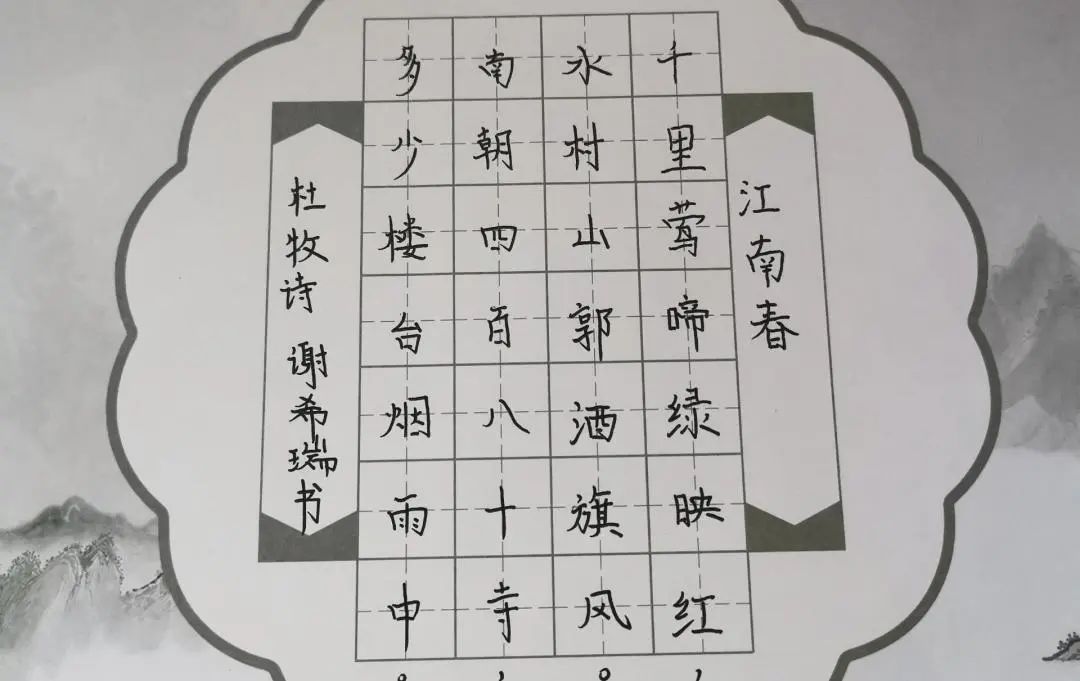 江南春
千里莺啼绿映红，
水村山郭酒旗风。
南朝四百八十寺，
多少楼台烟雨中。
杜牧诗 谢希瑞书